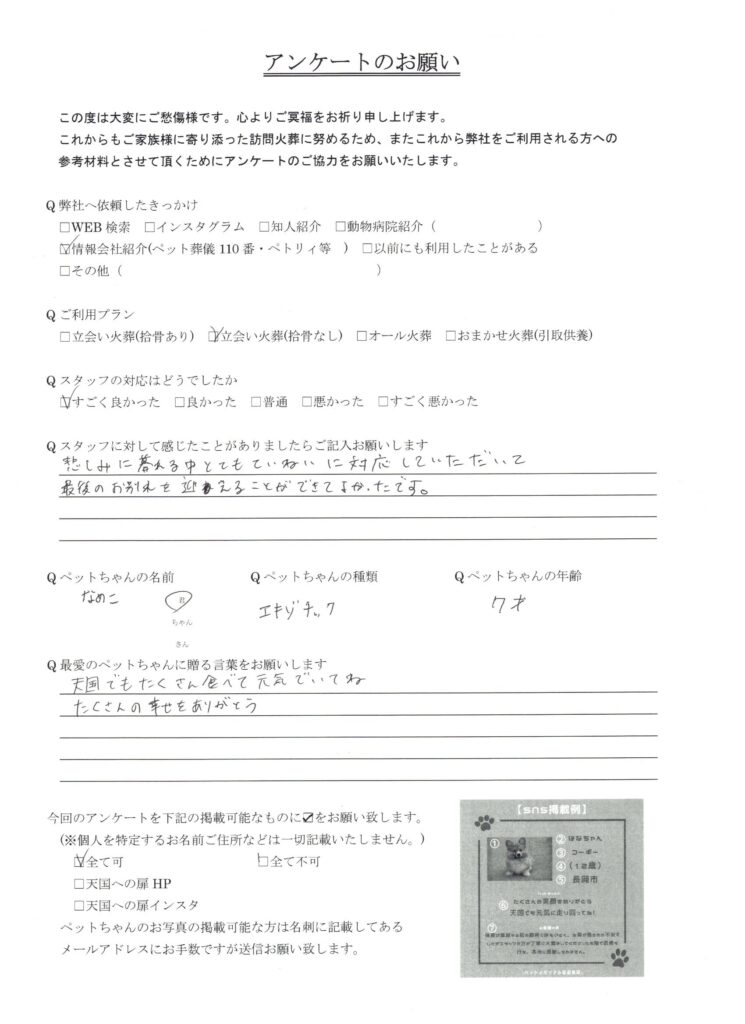 アンケートのお願い
この度は大変にご愁傷様です。心よりご冥福をお祈り申し上げます。
これからもご家族様に寄り添った訪問火葬に努めるため、またこれから弊社をご利用される方への
参考材料とさせて頂くためにアンケートのご協力をお願いいたします。
Q 弊社へ依頼したきっかけ
□WEB 検索 □インスタグラム □知人紹介 □動物病院紹介（ ）
☑情報会社紹介(ペット葬儀 110 番・ペトリィ等 ) □以前にも利用したことがある
□その他（ ）
Q ご利用プラン
□立会い火葬(拾骨あり) ☑立会い火葬(拾骨なし) □オール火葬 □おまかせ火葬(引取供養)
Q スタッフの対応はどうでしたか
☑すごく良かった □良かった □普通 □悪かった □すごく悪かった
Q スタッフに対して感じたことがありましたらご記入お願いします
悲しみに暮れる中とてもていねいに対応していただいて
最後のお別れを迎えることができてよかったです。
Q ペットちゃんの名前 Q ペットちゃんの種類 Q ペットちゃんの年齢
なめこ 君 エキゾチック 7才
ちゃん
さん
Q 最愛のペットちゃんに贈る言葉をお願いします
天国でもたくさん食べて元気でいてね
たくさんの幸せをありがとう
今回のアンケートを下記の掲載可能なものに☑をお願い致します。
(※個人を特定するお名前ご住所などは一切記載いたしません。)
☑全て可 □全て不可
□天国への扉 HP
□天国への扉インスタ
ペットちゃんのお写真の掲載可能な方は名刺に記載してある
メールアドレスにお手数ですが送信お願い致します。
【sns掲載例】
① ② はなちゃん
③ コーギー
④ (12歳)
⑤ 長岡市
⑥ たくさんの笑顔をありがとう
天国でも元気に走り回ってね!
⑦